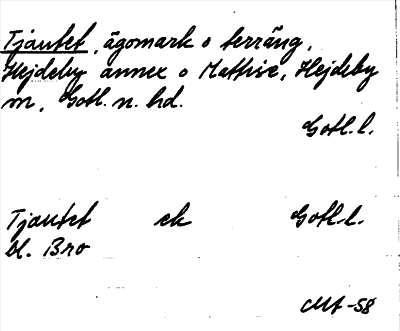 Tjautet, ägomark o terräng,
Hejdeby annex o Mattise, Hejdeby
sn, Gotl. n. hd.
Gotl. l.
Tjautet ek Gotl. l.
bl. Bro
MA -58